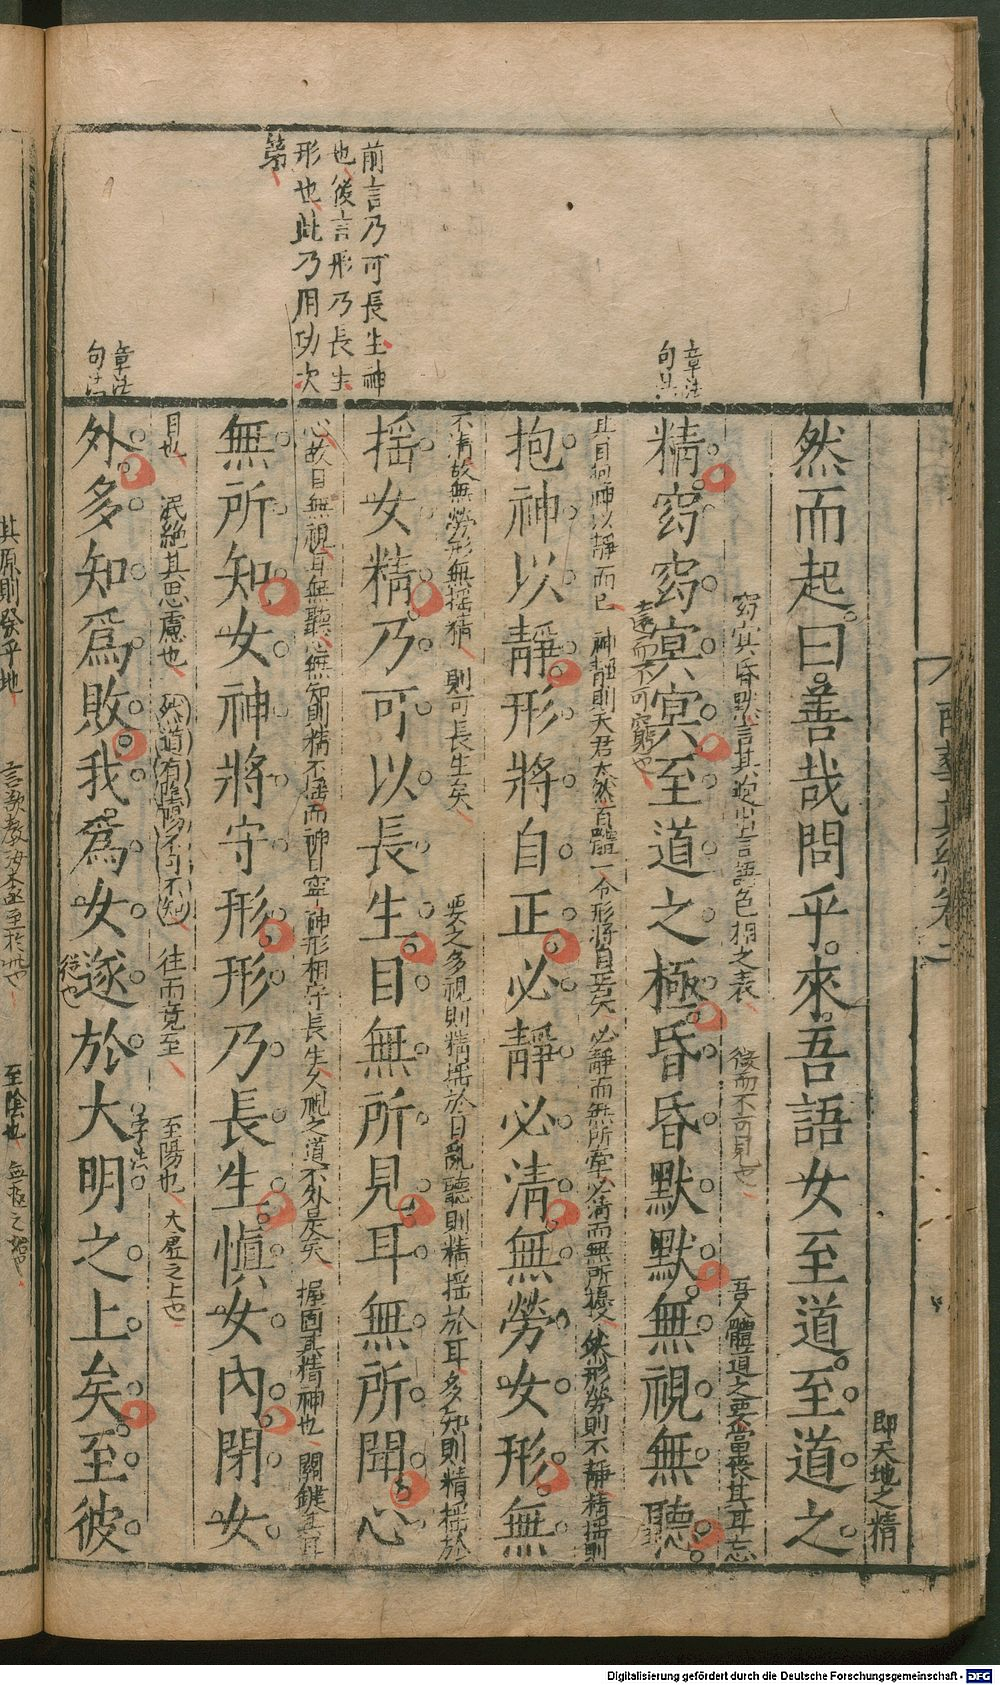 前言乃可長生神
也後言形乃長生
形也此乃用功次
第
章法
句法
章法
句法
南華真經卷二
即天地之精
然而起曰善哉問乎來吾語女至道至道之
窈冥昏默言其迥出言語色相之表
後而不可見也
吾人體道之要當喪其耳忘
精窈窈冥冥至道之極昏昏默默無視無聽
遠而不可窮也
其目抱神以靜而已 神靜則天君太然百體一令形將自正矣 必靜而無所勞必清而無所擾 然形勞則不靜精搖則
抱神以靜形將自正必靜必清無勞女形無
不清故無勞形無搖精 則可長生矣 要之多視則精搖於目亂聽則精搖於耳多知則精搖於
搖女精乃可以長生目無所見耳無所聞心
心故目無視耳無聽心無知則精不搖而神自寧神形相守長生久視之道不外是矣 握固其精神也 關鍵其耳
無所知女神將守形形乃長生慎女內閉女
目也 泯絕其思慮也 然道有陰陽不可不知 往而竟至 至陽也 大虛之上也
字法
外多知為敗我為女遂於大明之上矣至彼
從也
其原則發乎地
言欲教汝亦至於此也
至陰也
Digitalisierung gefördert durch die Deutsche Forschungsgemeinschaft - DFG